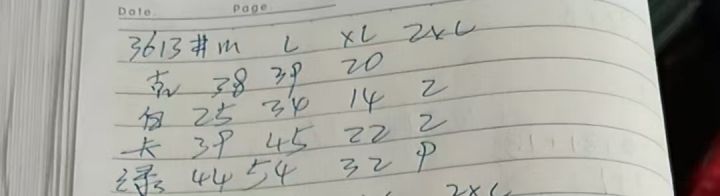 Date. Page
3613# m L XL 2XL
38 39 20
白 25 34 14 2
卡 39 45 22 2
绿 44 54 32 9
2XL